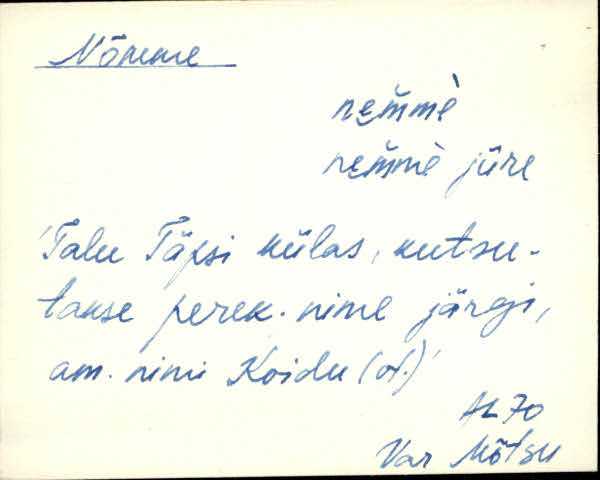 Nõmme
nẹm̆mè
nẹm̆mè jüre
'Talu Täpsi külas, kutsu-
takse perek. nime järgi,
am. nimi Koidu (of.)'
AL 70
Var Mõtsu